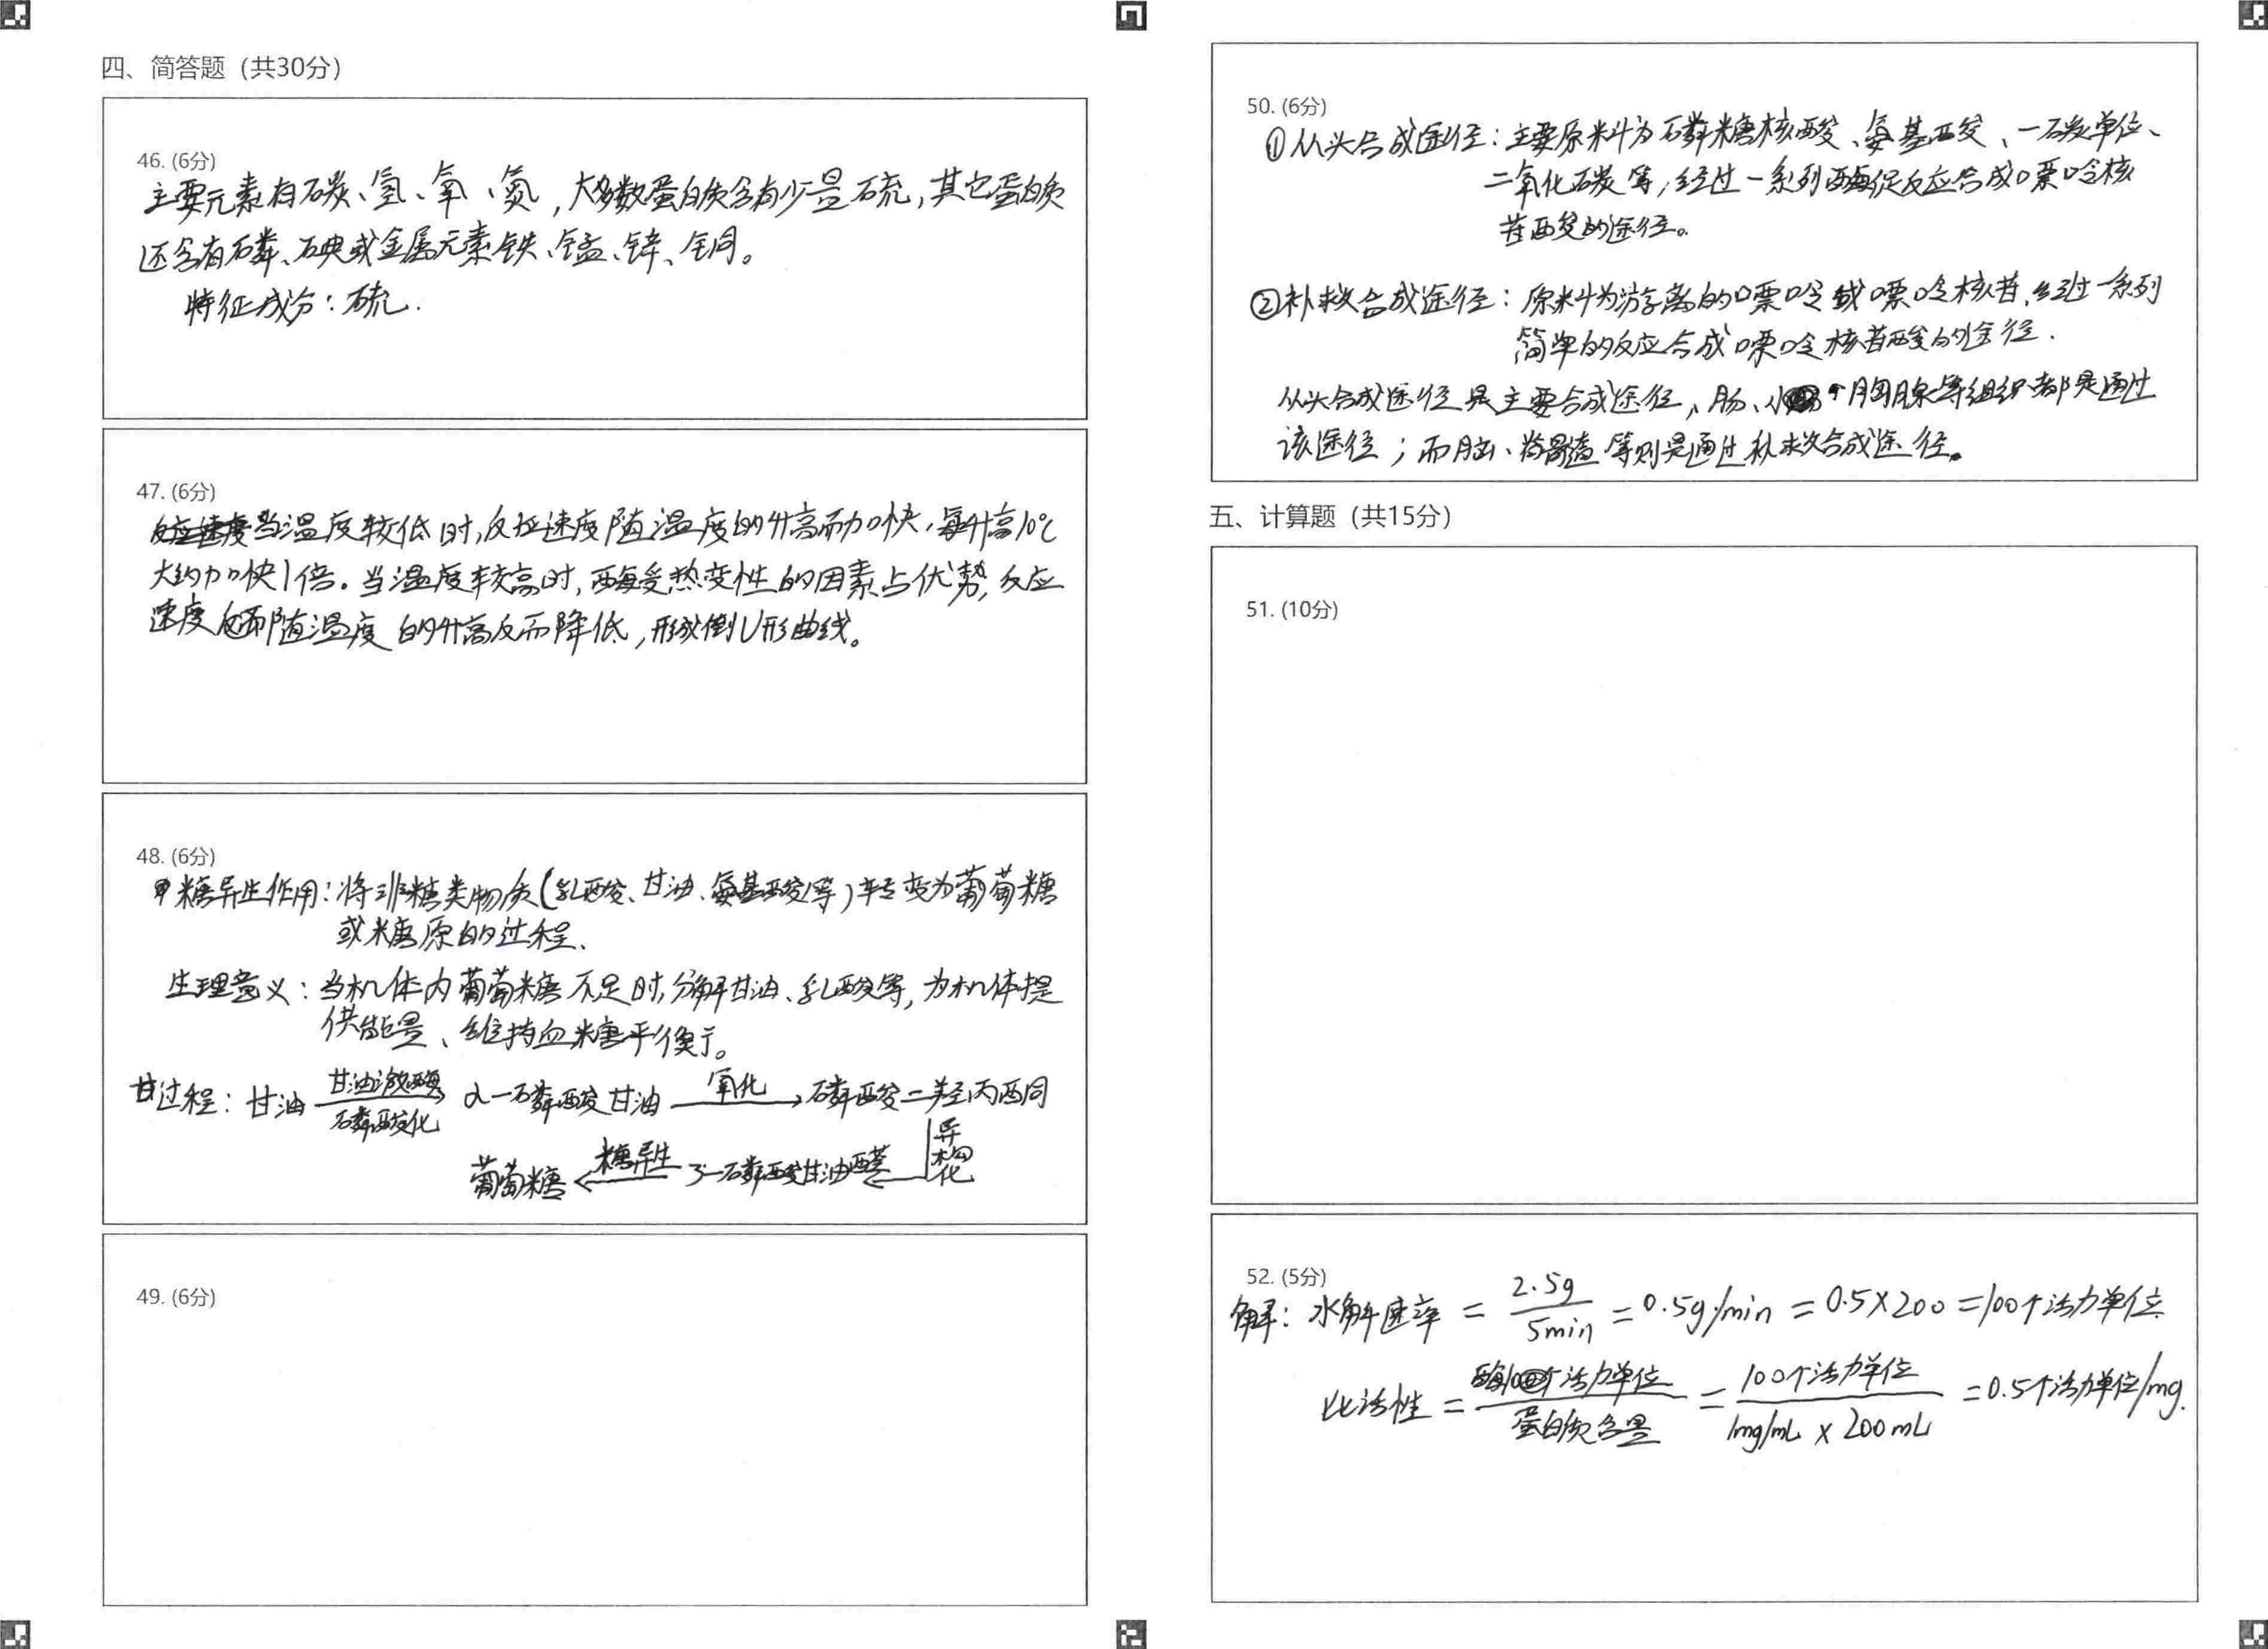 四、简答题（共30分）
46. (6分)
主要元素有碳、氢、氧、氮，大多数蛋白质含有少量硫，其它蛋白质
还含有磷、碘或金属元素铁、锰、锌、铜。
特征成分：硫.
47. (6分)
当温度较低时,反应速度随温度的升高而加快,每升高10℃
大约加快1倍。当温度较高时,酶受热变性的因素占优势,反应
速度随温度的升高反而降低,形成倒U形曲线。
48. (6分)
糖异生作用：将非糖类物质(乳酸、甘油、氨基酸等)转变为葡萄糖
或糖原的过程.
生理意义：当机体内葡萄糖不足时,分解甘油、乳酸等,为机体提
供能量、维持血糖平衡。
过程：甘油 甘油激酶 磷酸化 α-磷酸甘油 氧化 磷酸二羟丙酮
异构化
葡萄糖 糖异生 3-磷酸甘油醛
49. (6分)
50. (6分)
①从头合成途径：主要原料为磷糖核酸、氨基酸、一碳单位、
二氧化碳等,经过一系列酶促反应合成嘌呤核
苷酸的途径。
②补救合成途径：原料为游离的嘌呤或嘌呤核苷,经过一系列
简单的反应合成嘌呤核苷酸的途径.
从头合成途径是主要合成途径,肠、小胸腺等组织都是通过
该途径；而脑、骨髓等则是通过补救合成途径。
五、计算题（共15分）
51. (10分)
52. (5分)
解：水解速率 = 2.5g/5min = 0.5g/min = 0.5×200 = 100个活力单位.
比活性 = 酶100个活力单位/蛋白质含量 = 100个活力单位/1mg/mL × 200mL = 0.5个活力单位/mg.